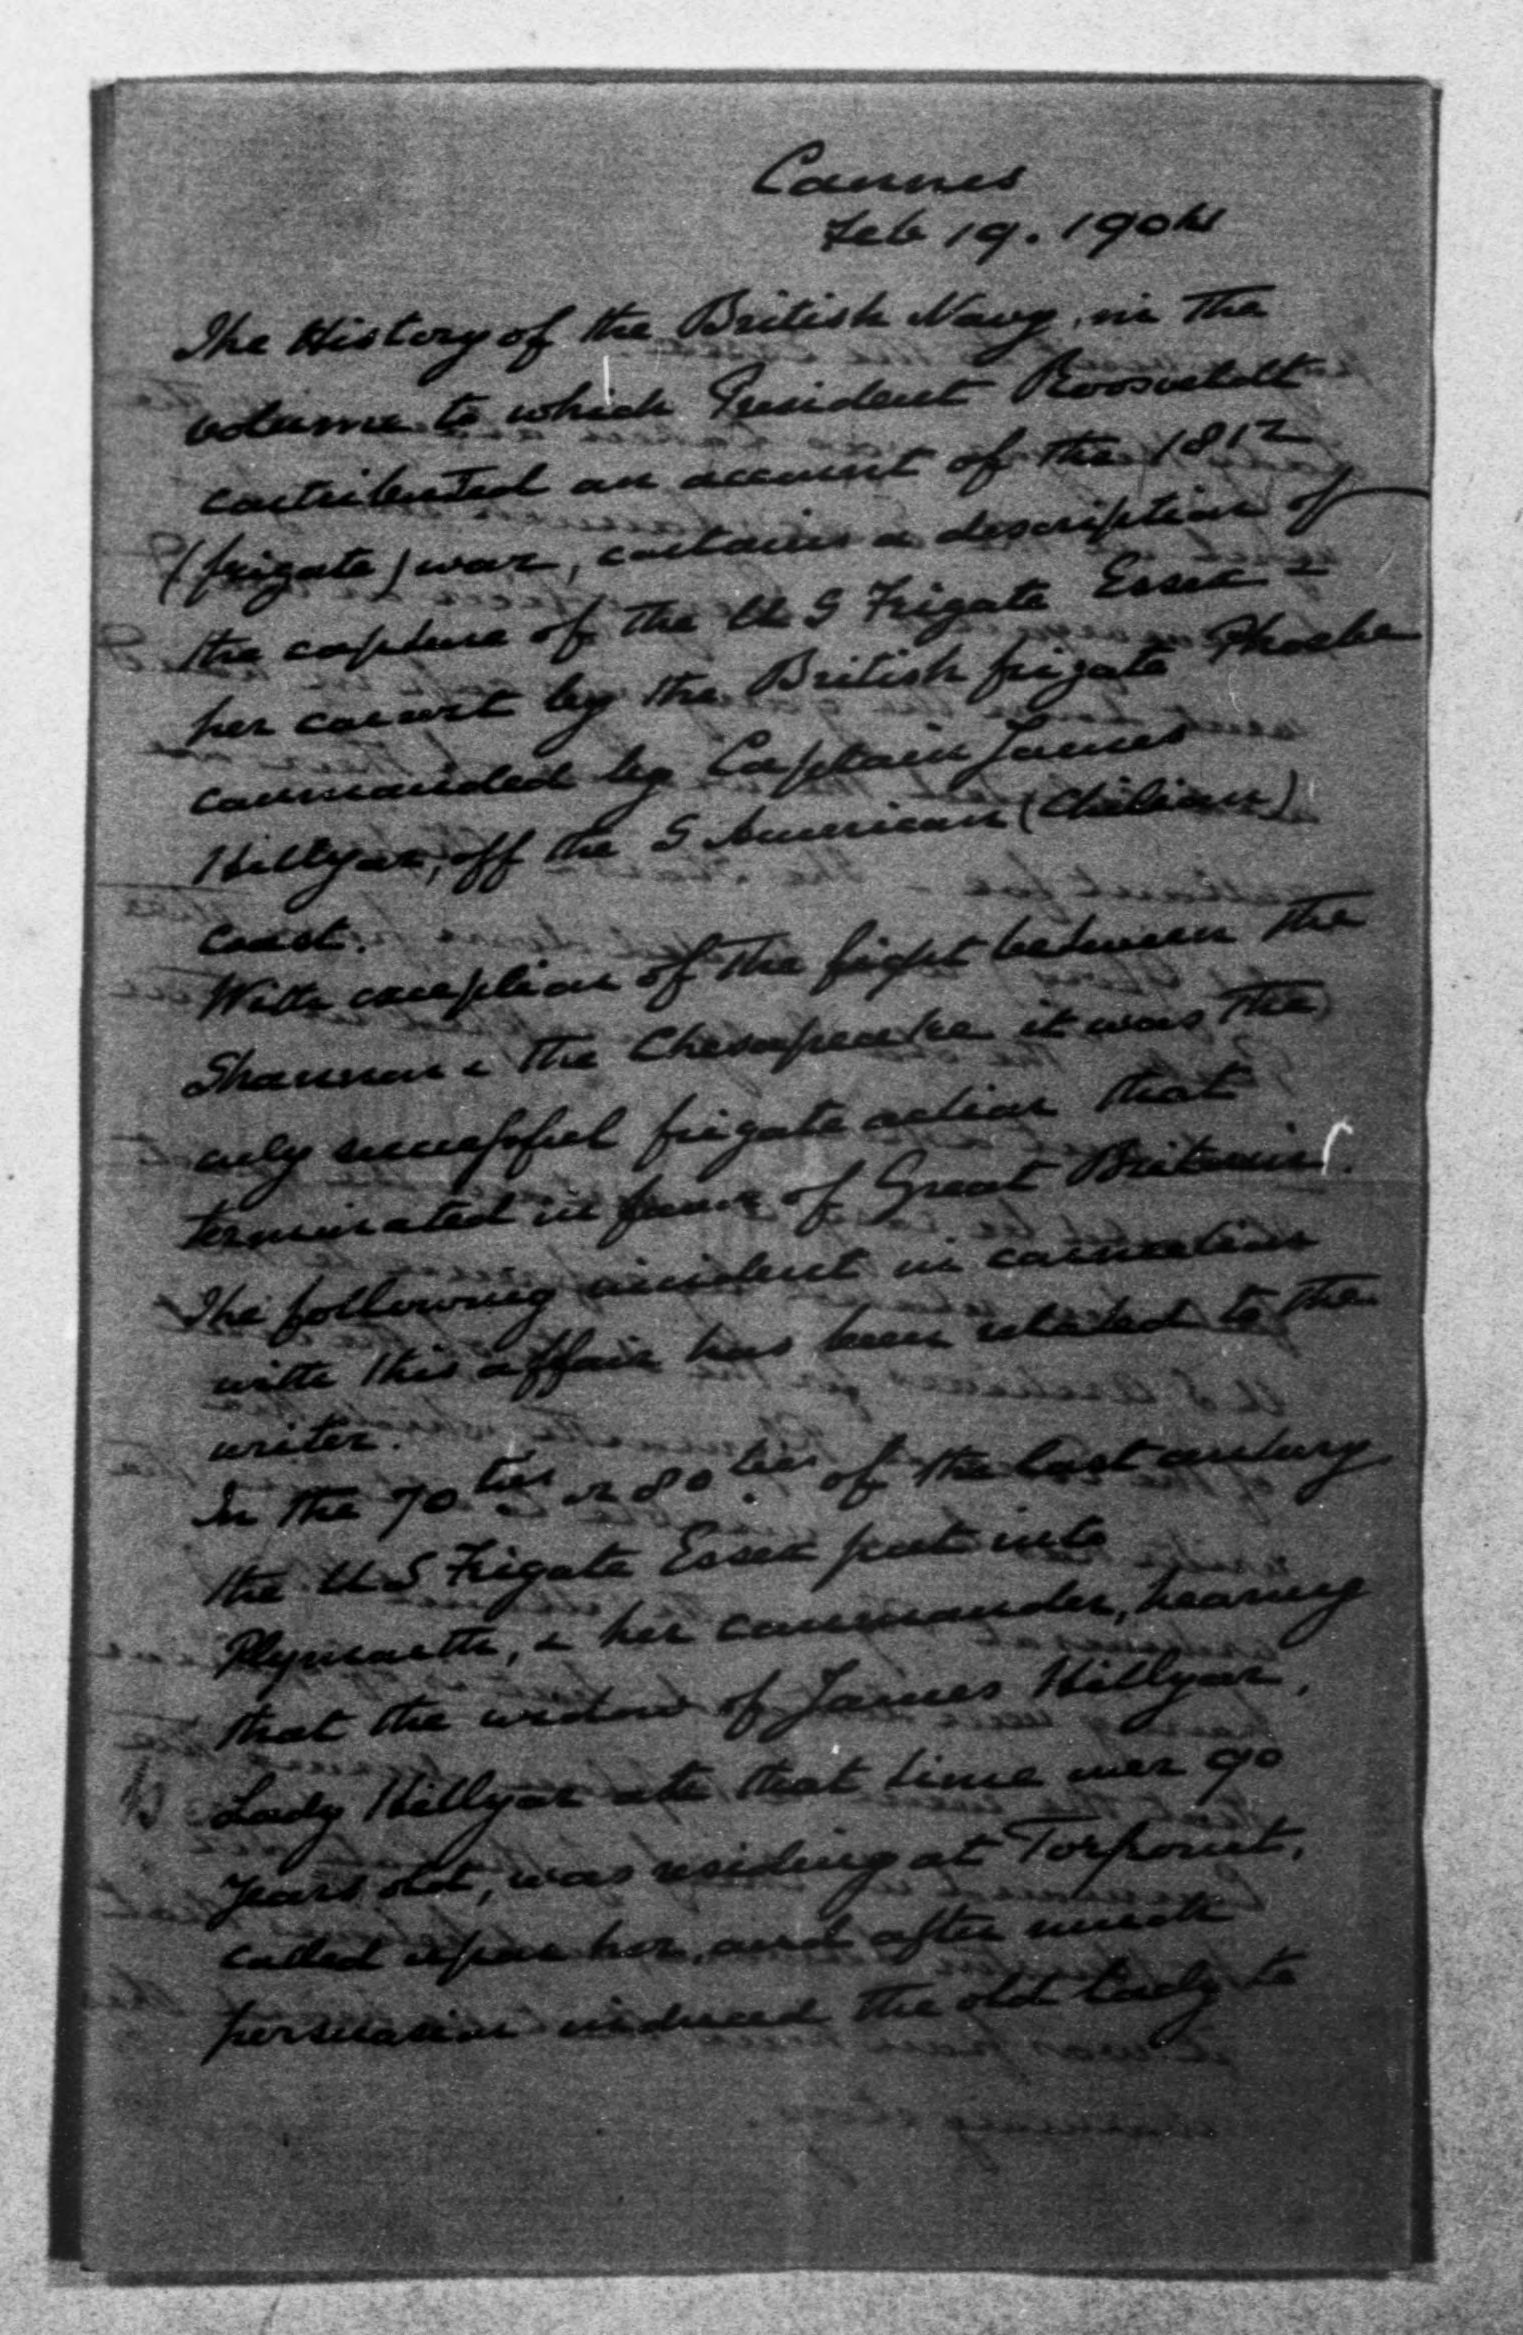 Cannes
Feb 19. 1904
The History of the British Navy, in the
volume to which President Roosveldt
contributed an account of the 1812
(frigate) war, contains a description of
the capture of the U S Frigate Essex &
her consort by the British frigate Phoebe
commanded by Captain James
Hillyar, off the S American (Chilian)
coast.
With exception of the fight between the
Shannon & the Chesapeake it was the
only successful frigate action that
terminated in favor of Great Britain.
The following incident in connection
with this affair has been related to the
writer.
In the 70ties or 80ties of the last century
the U S Frigate Essex put into
Plymouth, & her commander, hearing
that the widow of James Hillyar,
Lady Hillyar at that time over 90
years old, was residing at Torpoint,
called upon her, and after much
persuasion induced the old Lady to